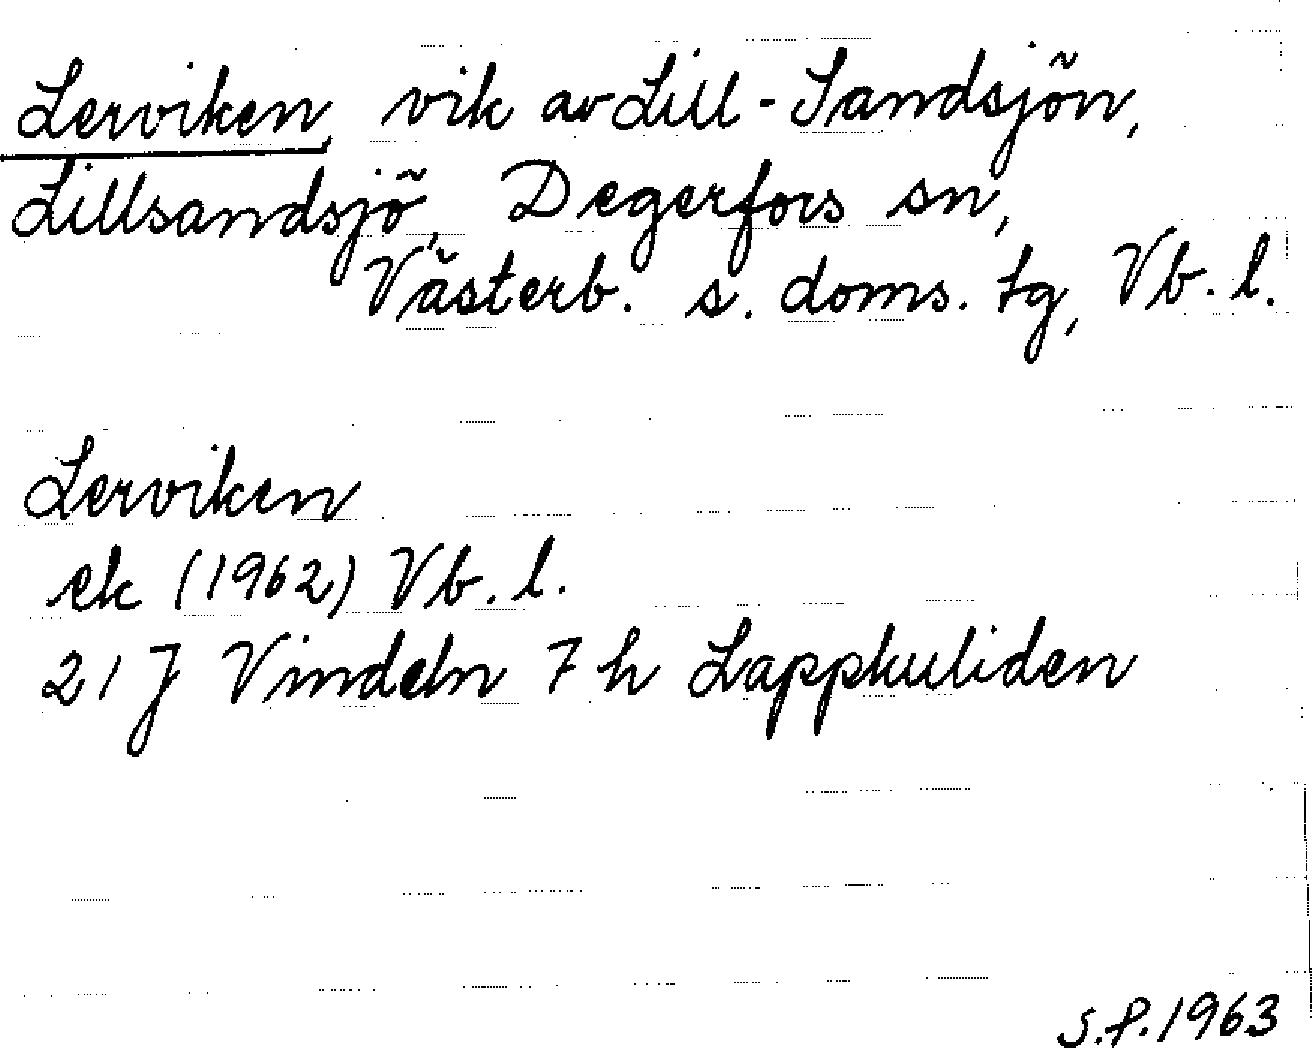 Lerviken, vik av Lill-Sandsjön,
Lillsandsjö, Degerfors sn,
Västerb. s. doms. tg, Vb. l.
Lerviken
ek (1962) Vb. l.
21 J Vindeln 7 h Lappkuliden
S.P. 1963